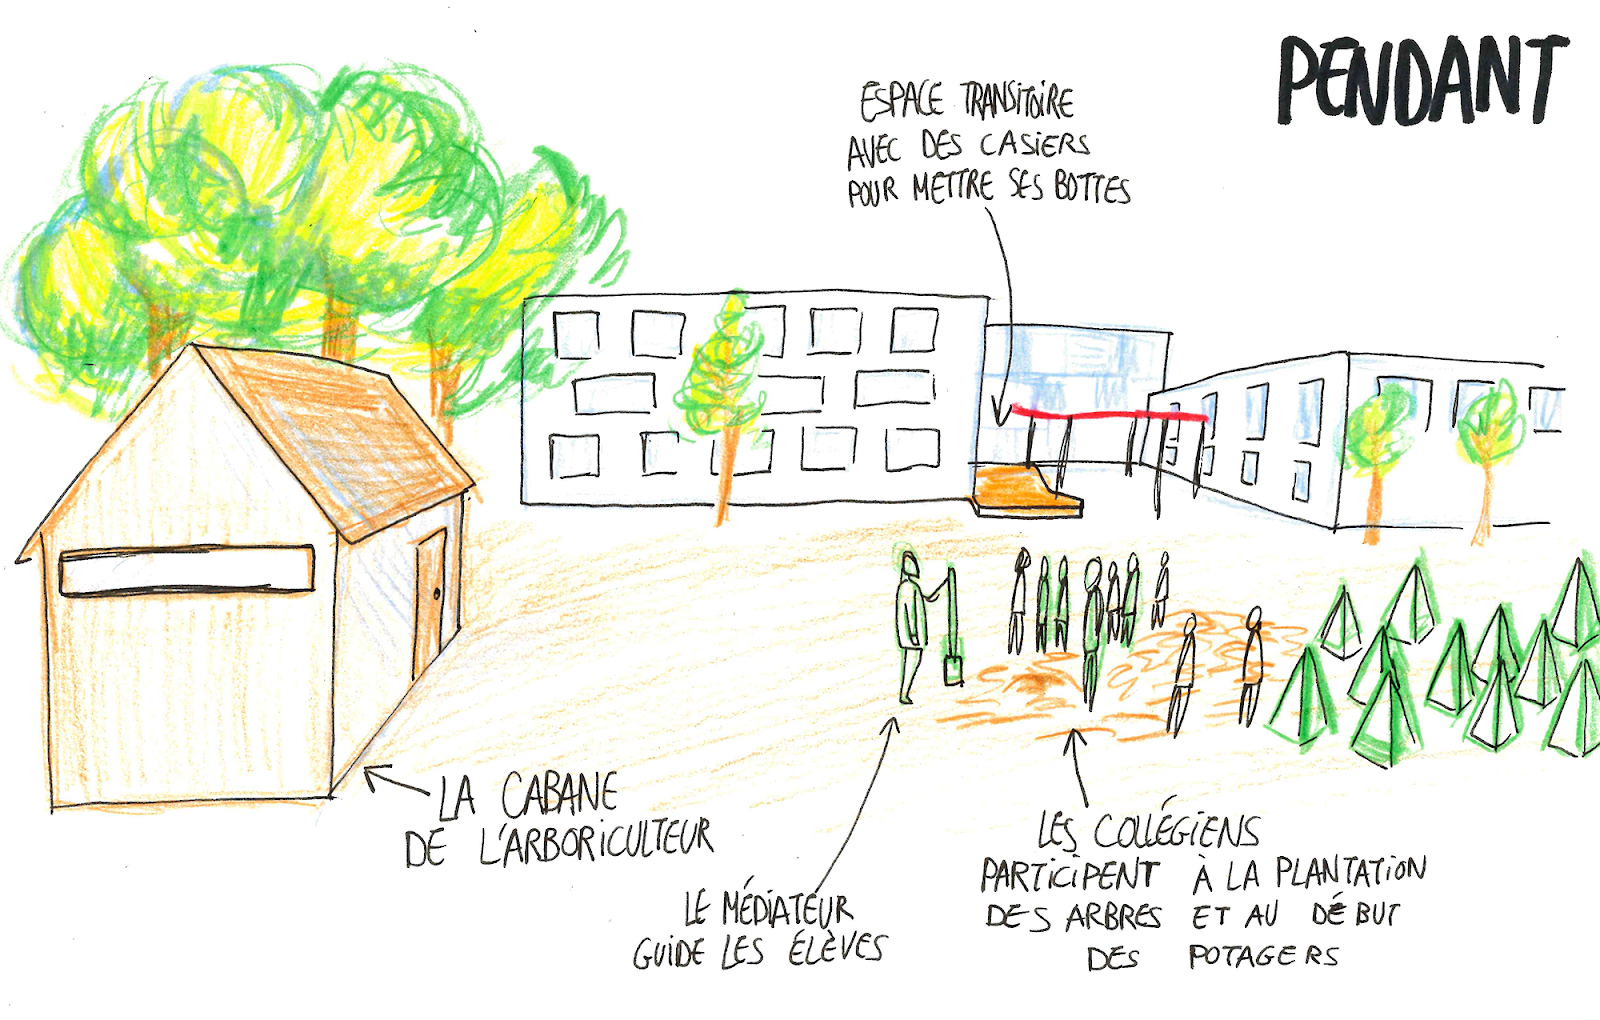 PENDANT
ESPACE TRANSITOIRE
AVEC DES CASIERS
POUR METTRE SES BOTTES
LA CABANE
DE L'ARBORICULTEUR
LE MÉDIATEUR
GUIDE LES ÉLÈVES
LES COLLÉGIENS
PARTICIPENT À LA PLANTATION
DES ARBRES ET AU DÉBUT
DES POTAGERS